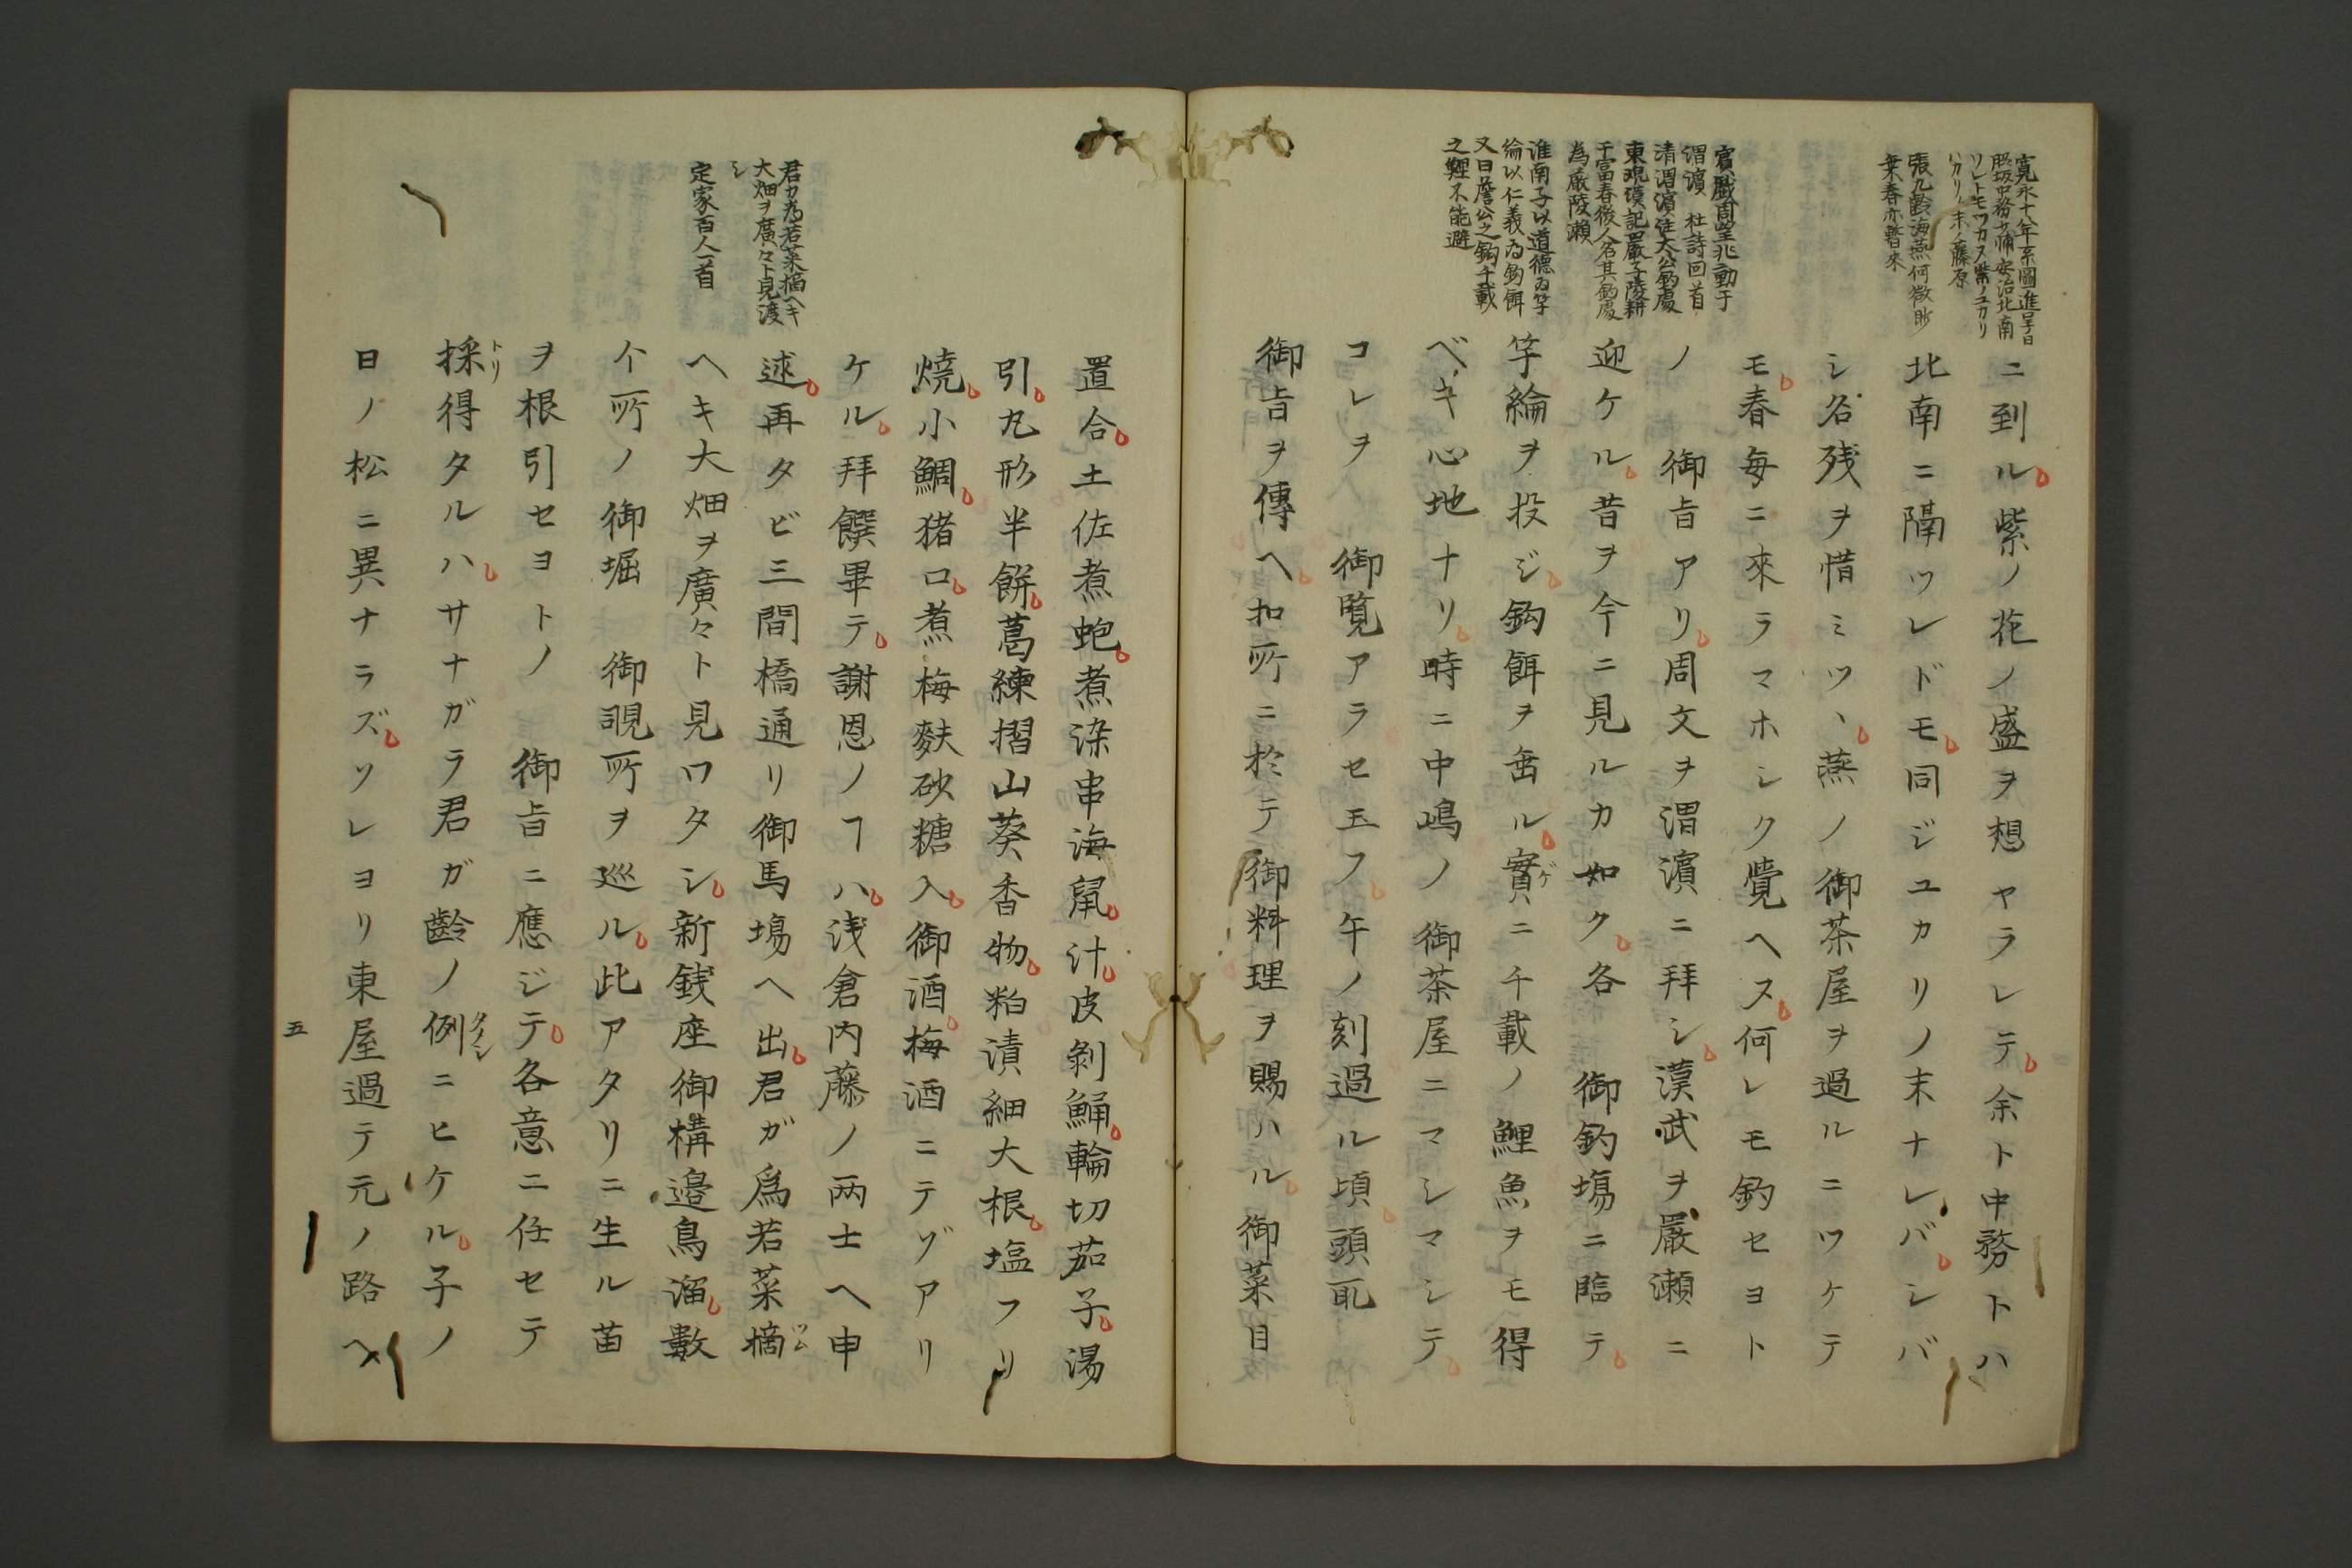 寛永十年系圖進呈日
脇坂中務少輔安治北南
ソレトモワカス紫ノユカリ
ハカリノ末ノ藤原
張九齡海燕何微眇
乗春亦暫來
賓戯周望兆動于
渭濱 杜詩回首
清渭濱往大公釣處
東觀漢記曰嚴子陵耕
于富春後人名其釣處
為嚴陵瀬
淮南子以道德為竿
綸以仁義為鈎餌
又曰詹公之鈎千載
之鯉不能避
ニ到ル紫ノ花ノ盛ヲ想ヤラレテ余ト中務トハ
北南ニ隔ツレドモ同ジユカリノ末ナレバシバ
シ名残ヲ惜ミツヽ燕ノ御茶屋ヲ過ルニツケテ
モ春毎ニ來ラマホシク覺ヘヌ何レモ釣セヨト
ノ 御旨アリ周文ヲ渭濱ニ拜シ漢武ヲ嚴瀬ニ
迎ケル昔ヲ今ニ見ルカ如ク各 御釣塲ニ臨テ
竿綸ヲ投ジ鈎餌ヲ垂ル實ニ千載ノ鯉魚ヲモ得
ベキ心地ナリ時ニ中嶋ノ御茶屋ニマシマシテ
コレヲ 御覽アラセ玉フ午ノ刻過ル頃頭取
御旨ヲ傳ヘ扣所ニ於テ御料理ヲ賜ハル御菜目
君カ為若菜摘ヘキ
大畑ヲ廣々ト見渡
シ
定家百人一首
置合土佐煮蚫煮染串海鼠汁皮剝鯒輪切茄子湯
引丸形半餅葛練摺山葵香物粕漬細大根塩フリ
燒小鯛猪口煮梅麩砂糖入御酒梅酒ニテゾアリ
ケル拜饌畢テ謝恩ノヿハ浅倉内藤ノ兩士ヘ申
述再タビ三間橋通リ御馬塲ヘ出君ガ爲若菜摘
ヘキ大畑ヲ廣々ト見ワタシ新銭座御構邉鳥溜數
个所ノ御堀 御覗所ヲ巡ル此アタリニ生ル苗
ヲ根引セヨトノ 御旨ニ應ジテ各意ニ任セテ
採得タルハサナガラ君ガ齡ノ例ニヒケル子ノ
日ノ松ニ異ナラズソレヨリ東屋過テ元ノ路ヘ
五